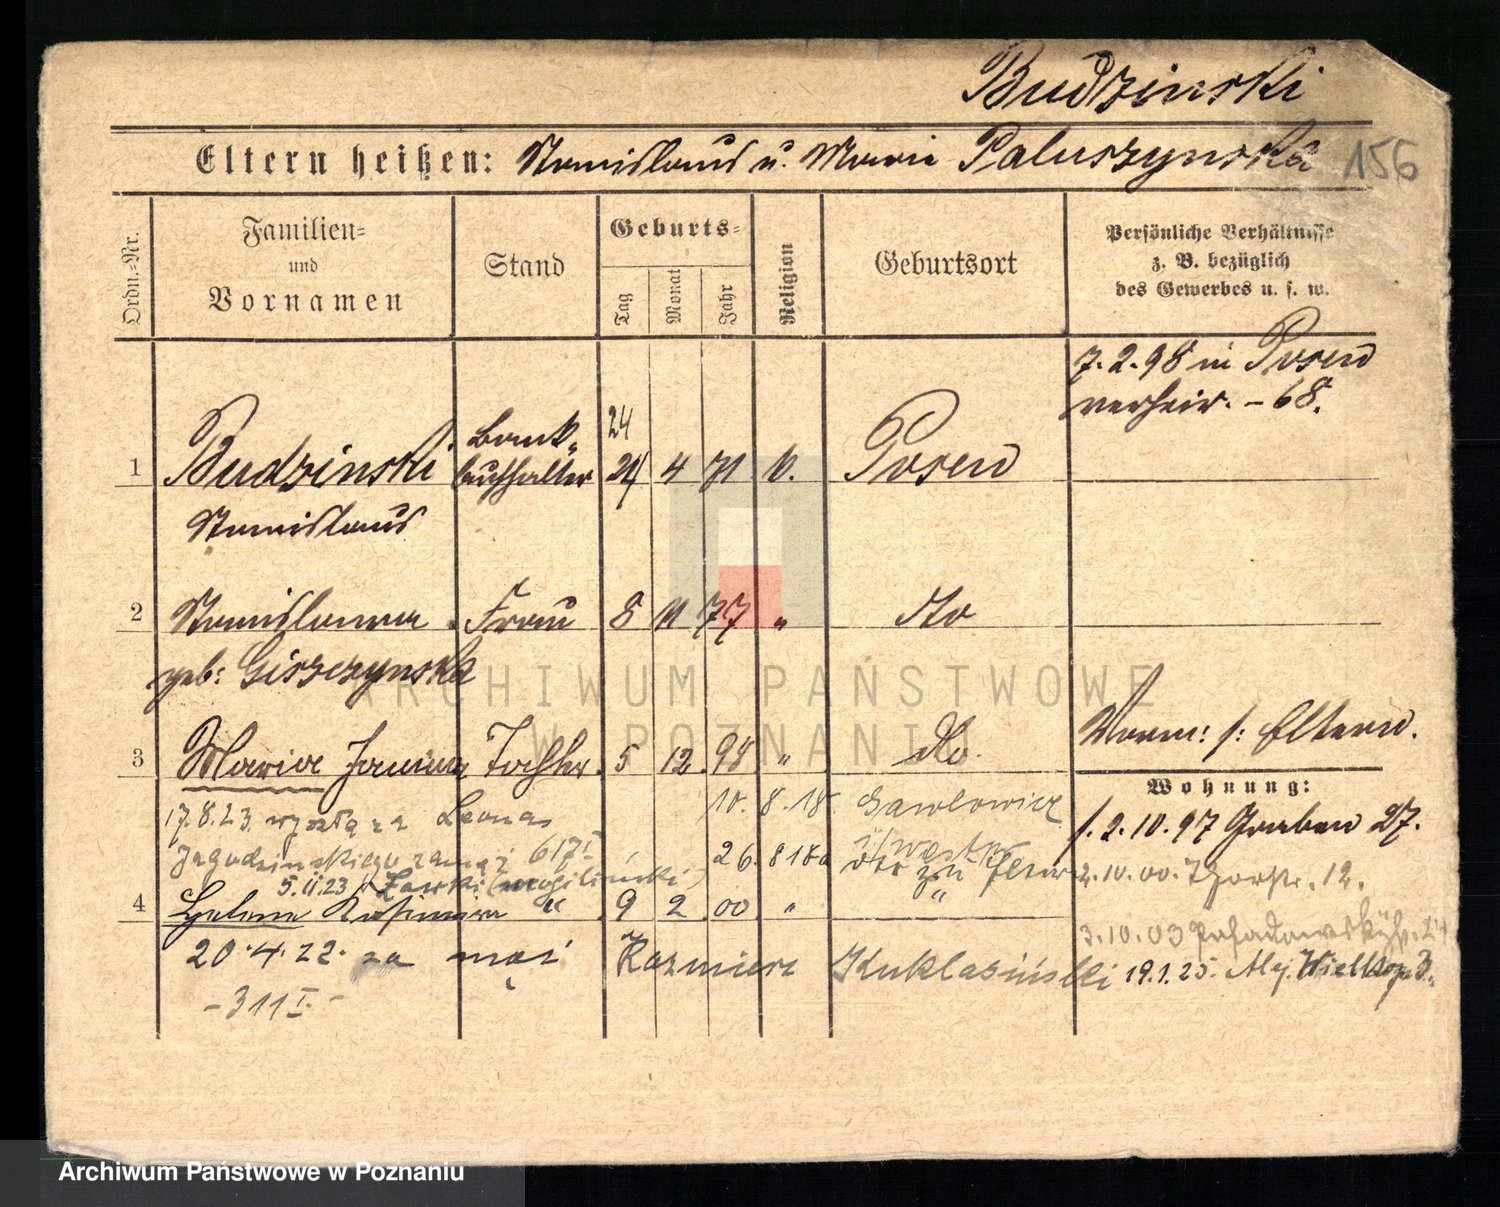 Budzinski
Eltern heißen: Stanislaus u. Marie Paluszynska 156
Ordn.-Nr.
Familien- und Vornamen
Stand
Geburts-
Tag Monat Jahr
Religion
Geburtsort
Persönliche Verhältnisse
z. B. bezüglich
des Gewerbes u. s. w.
7.2.98 in Posen
verheir. - 68.
24
Bank-
1 Budzinski buchhalter 24 4 71 k. Posen
Stanislaus
2 Stanislawa Frau 8 11 77 " dto
geb: Giszczynska
Verm: s: Eltern.
3 Maria Janina Tochter 5 12 98 " do.
Wohnung:
17.8.23 wyszła za Leona 10.8.18
s. 2.10.97 Graben 27.
Jagodzinskiego zamąż 617 I 26. 8 18
2.10.00. Thorstr. 12.
5.11.23 Żarki (mogilińcki)
4 Helene Kasimira " 9 2 00 "
3.10.03
20.4.22. za mąż Kazmierz 19.1.25. Alej. Wielkop. 3.
- 311 I. -
ARCHIWUM PAŃSTWOWE
W POZNANIU
Archiwum Państwowe w Poznaniu